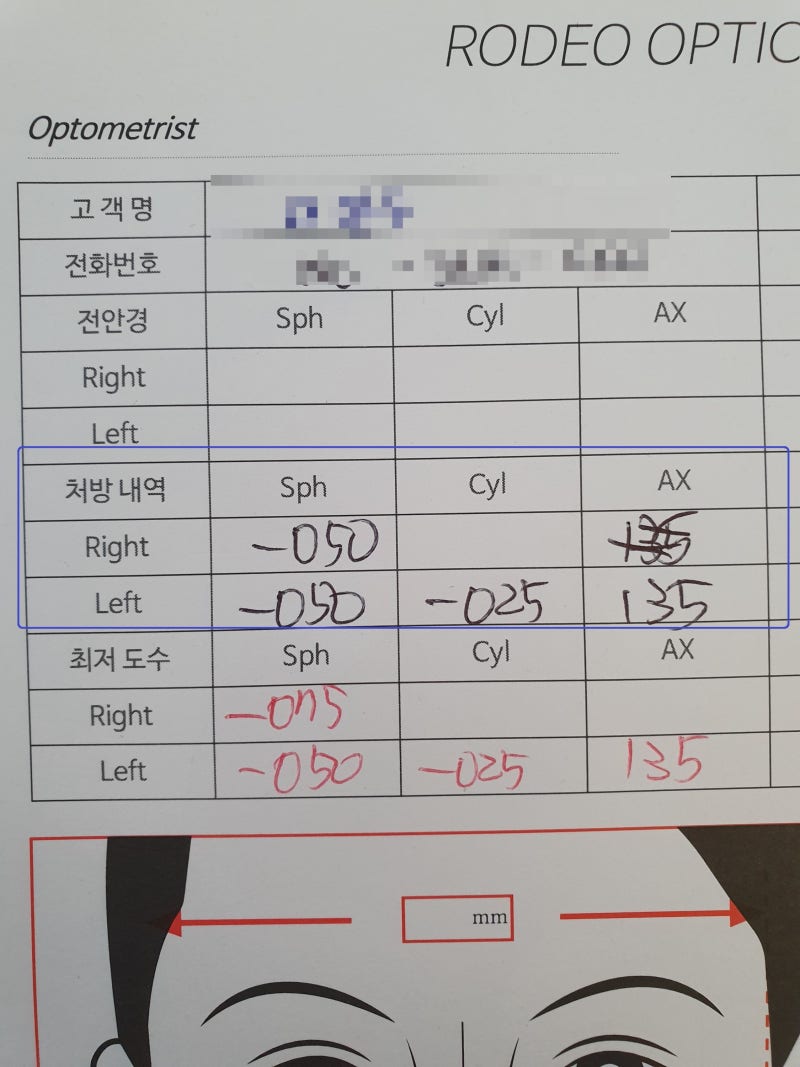 RODEO OPTIC
Optometrist
고 객 명
전화번호
전안경 Sph Cyl AX
Right
Left
처방 내역 Sph Cyl AX
Right -050 135
Left -050 -025 135
최저 도수 Sph Cyl AX
Right -075
Left -050 -025 135
mm